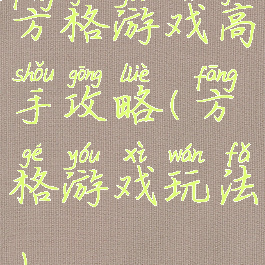 方格游戏高
shǒu gōng lüè fāng
手攻略(方
gé yóu xì wán fǎ
格游戏玩法
)